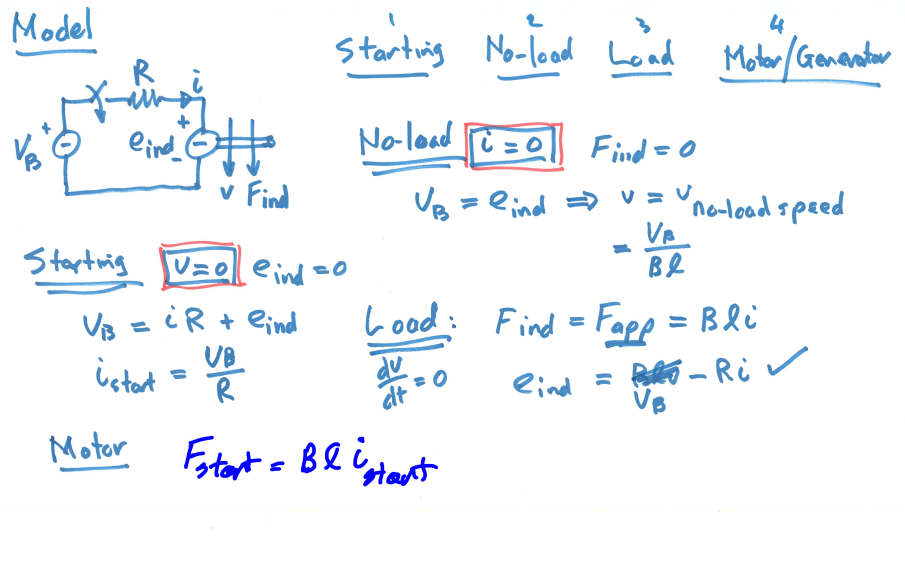 Model
1 2 3 4
Starting No-load Load Motor/Generator
R i
V_B + e_ind + -
v F_ind
No-load i = 0 F_ind = 0
V_B = e_ind ⇒ v = v_no-load speed
= V_B / Bℓ
Starting v = 0 e_ind = 0
V_B = iR + e_ind
i_start = V_B / R
Load: F_ind = F_app = Bℓi
dv/dt = 0 e_ind = V_B - Ri ✓
Motor F_start = Bℓ i_start